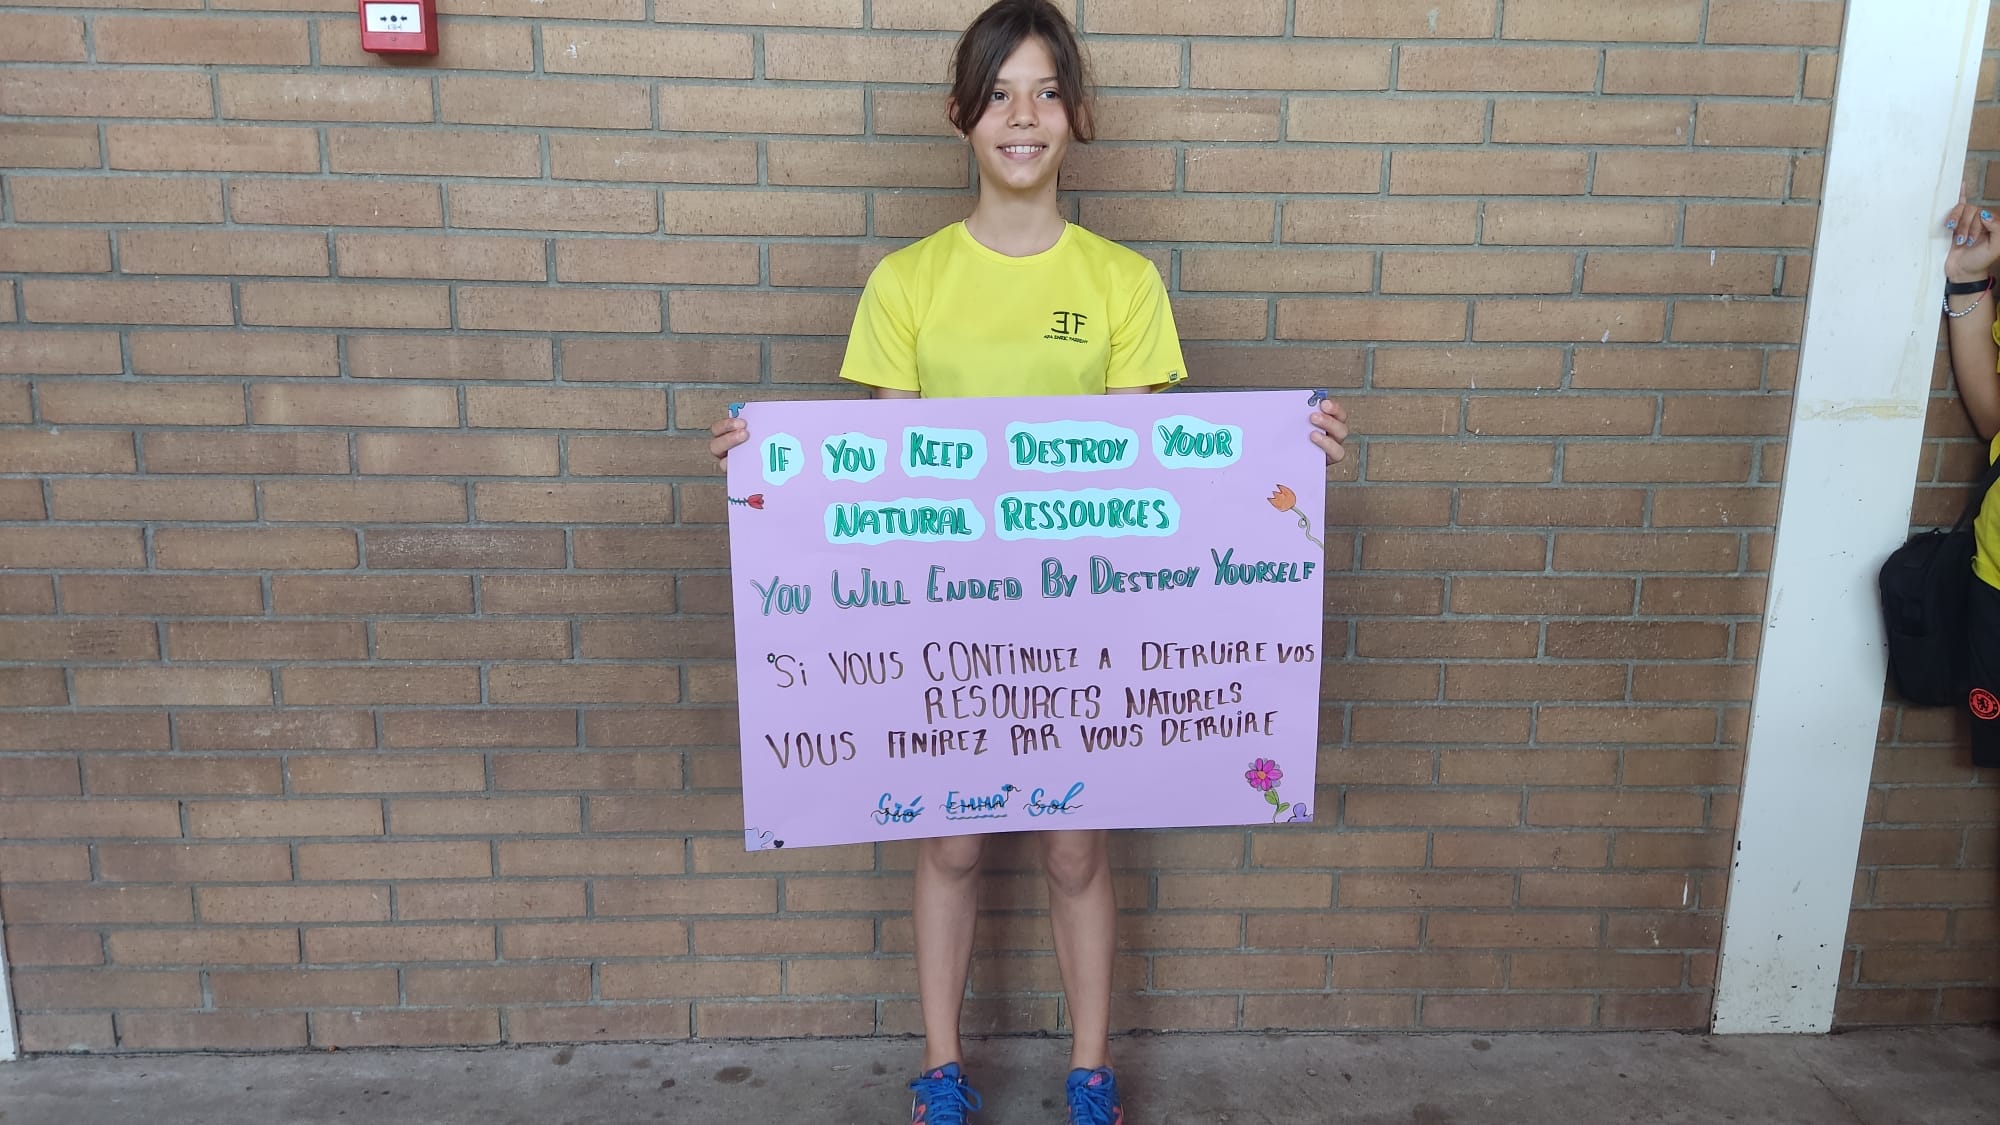 EF
IF YOU KEEP DESTROY YOUR
NATURAL RESSOURCES
YOU WILL ENDED BY DESTROY YOURSELF
"Si VOUS CONTINUEZ A DETRUIRE VOS
RESOURCES NATURELS
VOUS FINIREZ PAR VOUS DETRUIRE
Sió EMMA Sol